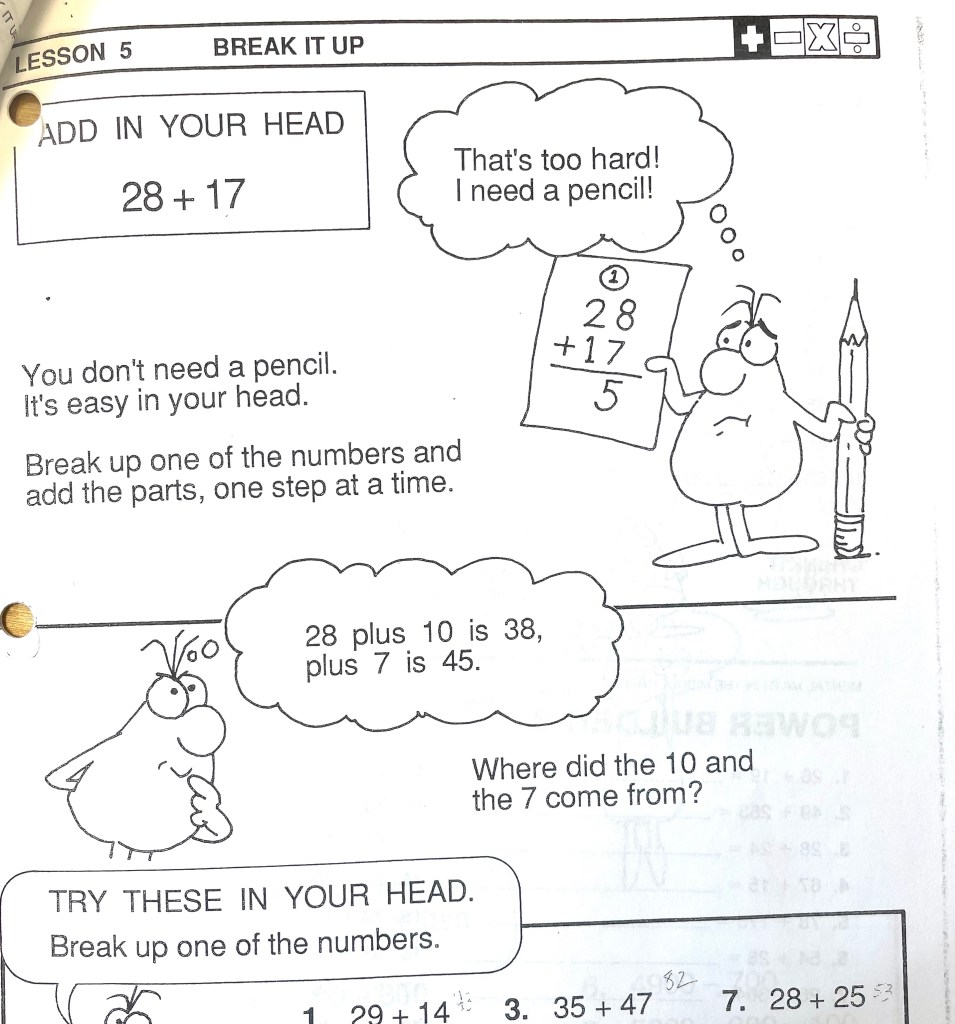 LESSON 5 BREAK IT UP
+ − X ÷
ADD IN YOUR HEAD
28 + 17
That's too hard!
I need a pencil!
1
28
+17
5
You don't need a pencil.
It's easy in your head.
Break up one of the numbers and
add the parts, one step at a time.
28 plus 10 is 38,
plus 7 is 45.
Where did the 10 and
the 7 come from?
TRY THESE IN YOUR HEAD.
Break up one of the numbers.
1. 29 + 14
3. 35 + 47 82
7. 28 + 25 53